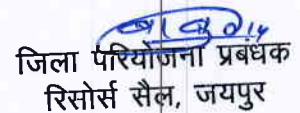 जिला परियोजना प्रबंधक
रिसोर्स सैल, जयपुर